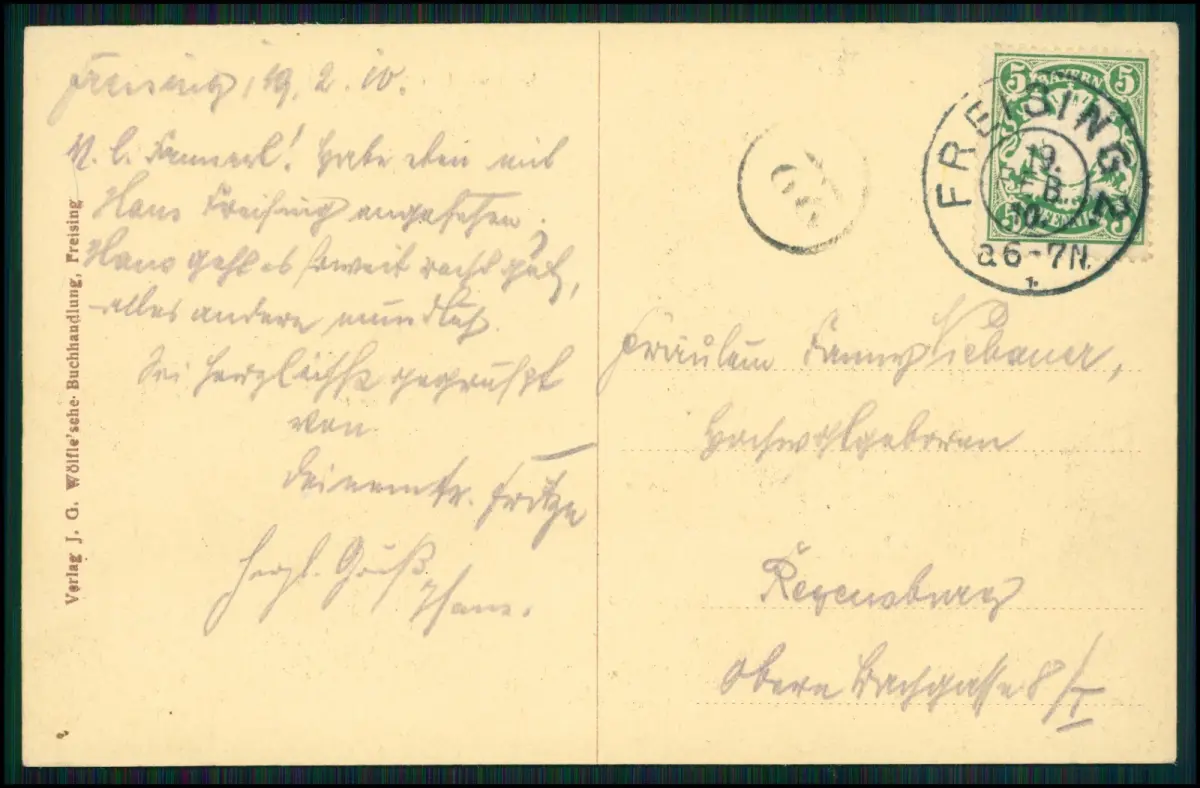 Freising, 19. 2. 10.
M. l. Fannerl! Habe eben mit
Hans Freising angesehen.
Hans geht es soweit recht gut,
alles andere mündlich.
Sei herzlichst gegrüßt
von
Deinem tr. Fritze
Herzl. Gruß
Hans.
Verlag J. G. Wölfle'sche Buchhandlung, Freising
5 BAYERN 5
5 PFENNIG
FREISING 2
19.
FEB.
10
6-7N.
1.
Fräulein Fanny
Hochwohlgeboren
Regensburg
Obere Bachgasse 8/I